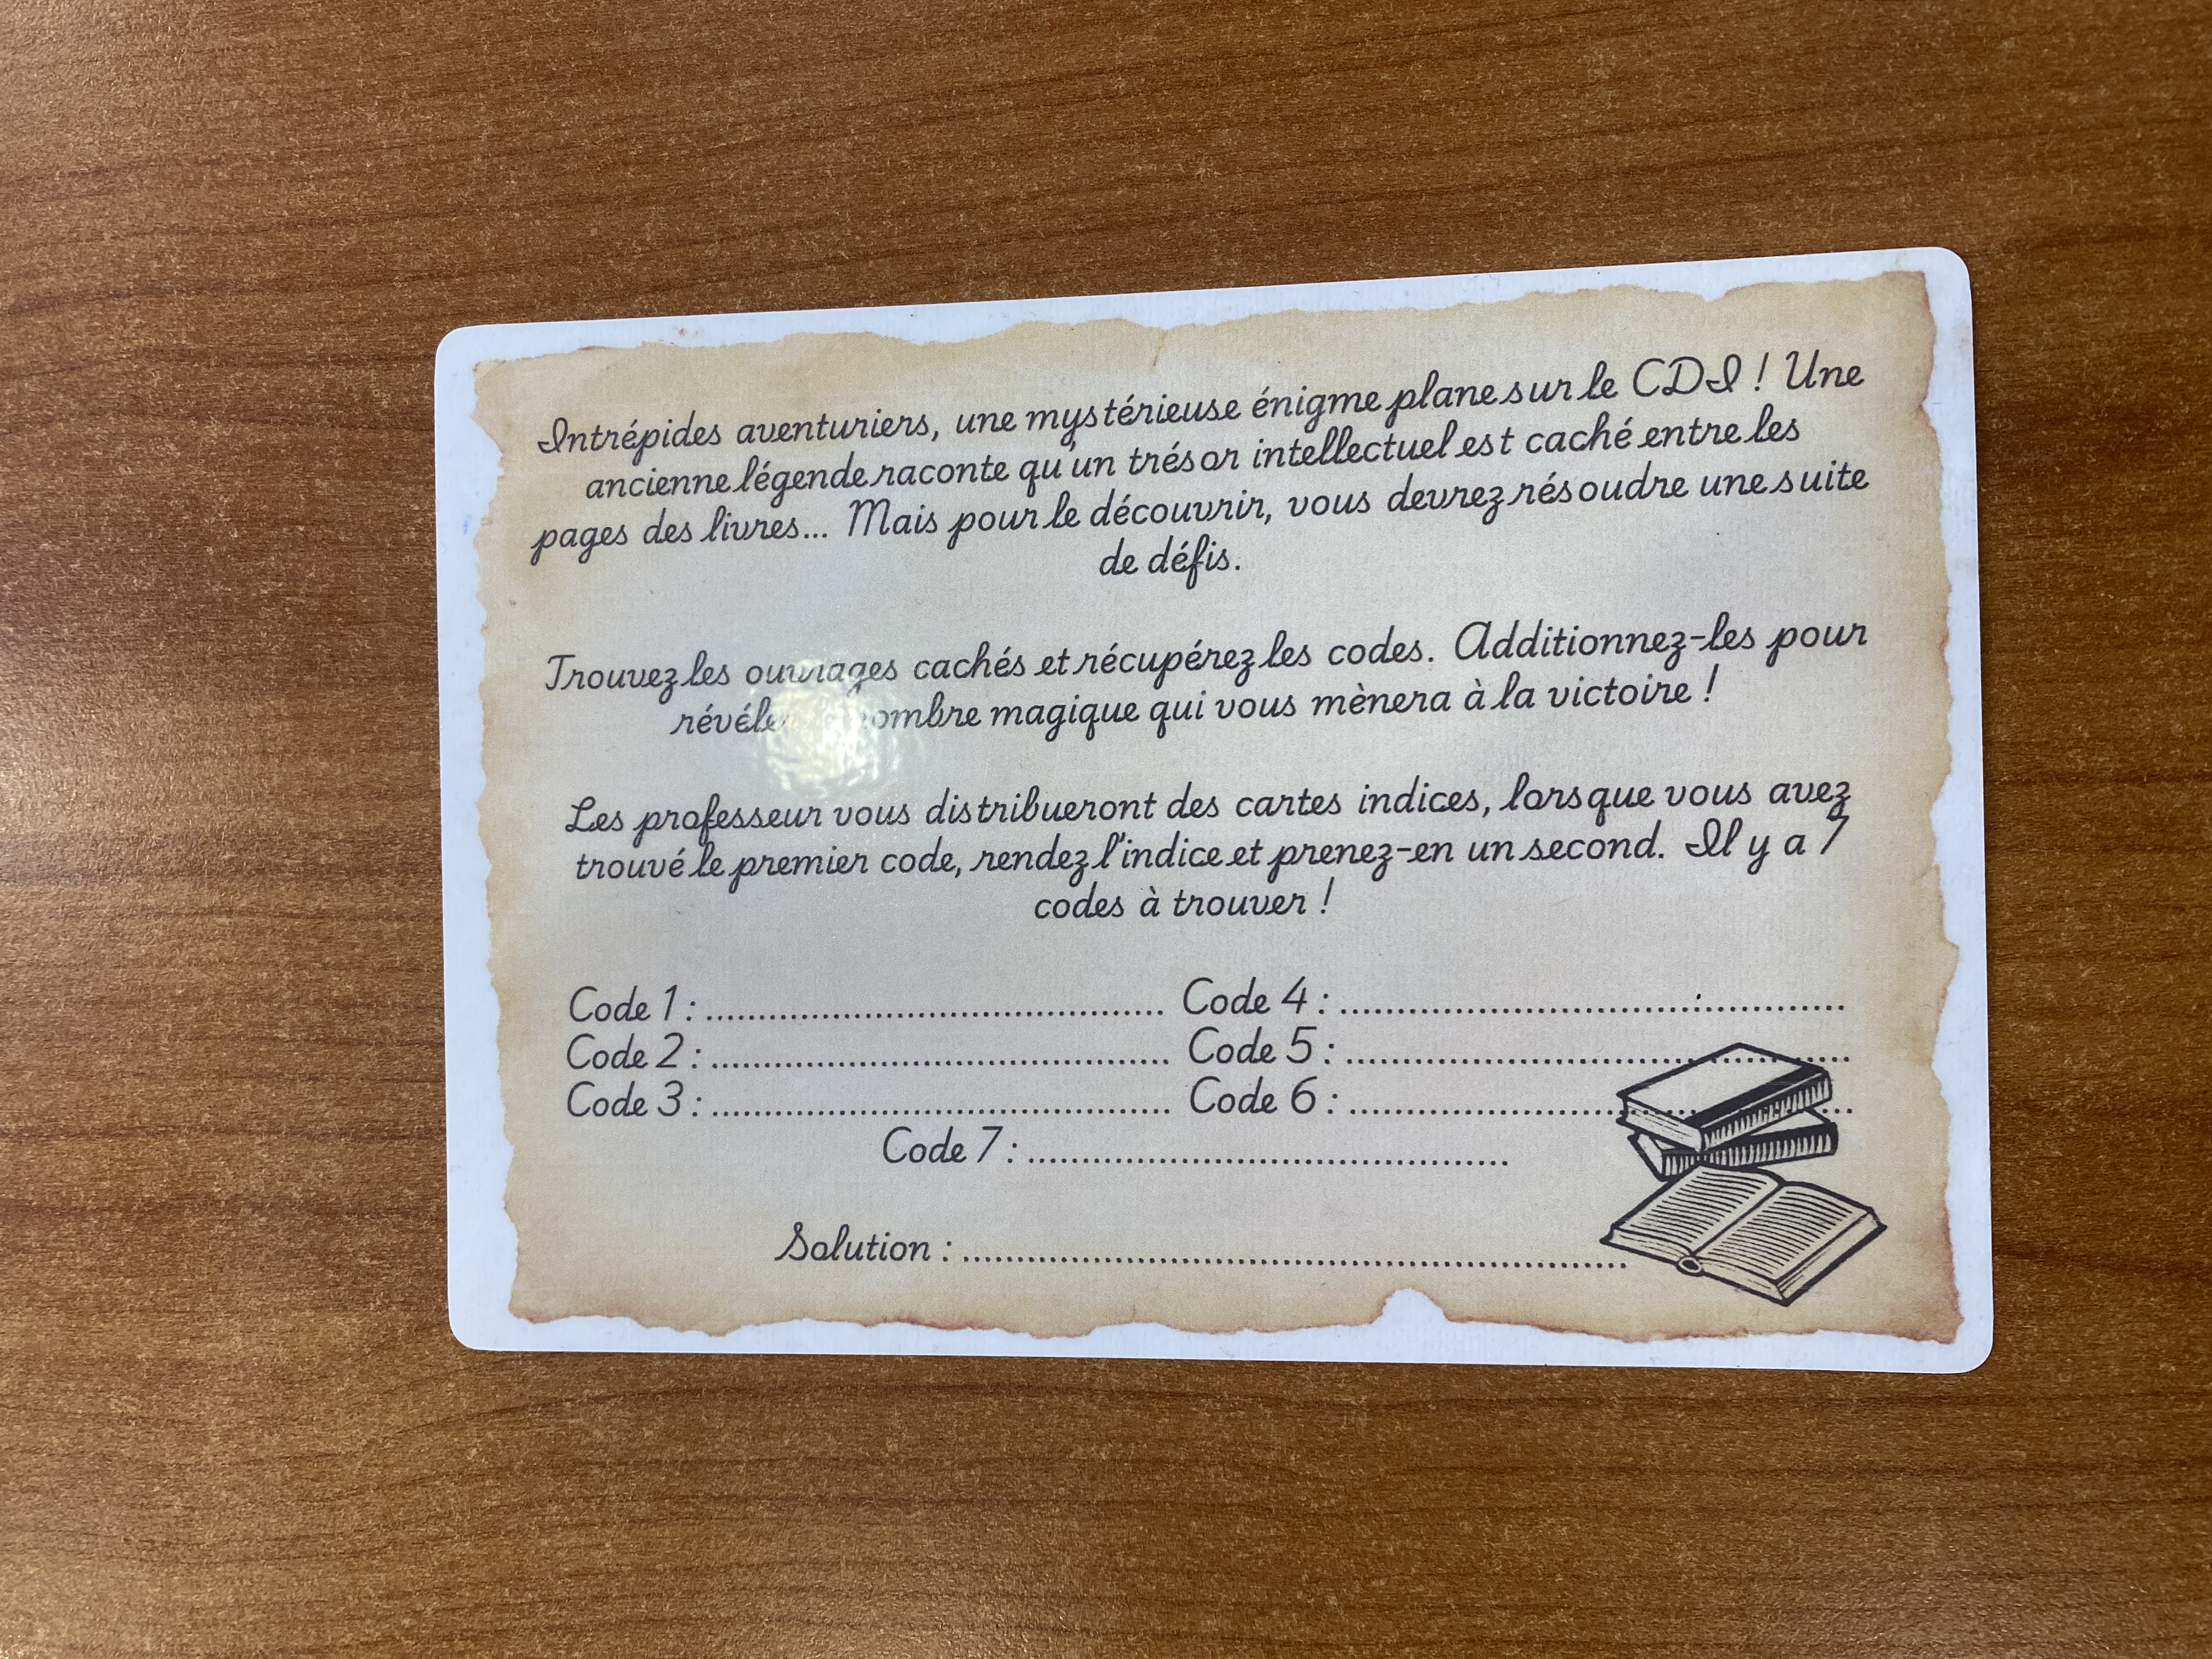 Intrépides aventuriers, une mystérieuse énigme plane sur le CDI ! Une
ancienne légende raconte qu'un trésor intellectuel est caché entre les
pages des livres... Mais pour le découvrir, vous devrez résoudre une suite
de défis.
Trouvez les ouvrages cachés et récupérez les codes. Additionnez-les pour
magique qui vous mènera à la victoire !
Les professeur vous distribueront des cartes indices, lorsque vous avez
trouvé le premier code, rendez l'indice et prenez-en un second. Il y a 7
codes à trouver !
Code 1 : ............................................ Code 4 : ................................................
Code 2 : ............................................ Code 5 : ................................................
Code 3 : ............................................ Code 6 : ................................................
Code 7 : ..............................................
Solution : ................................................................